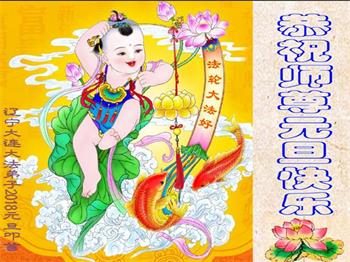 恭祝师尊元旦快乐
法轮大法好
辽宁大连大法弟子2018元旦叩首